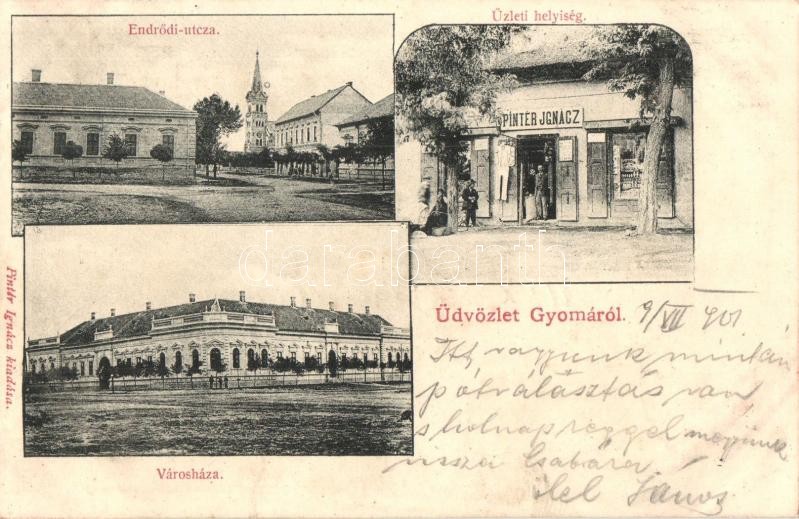 Endrődi-utcza.
Üzleti helyiség.
PINTÉR JGNÁCZ
darabanth
Városháza.
Pintér Ignácz kiadása.
Üdvözlet Gyomáról.
9/VII 901
Itt vagyunk miután
pótválasztás van
s holnap reggel megyünk
vissza Csabára
János